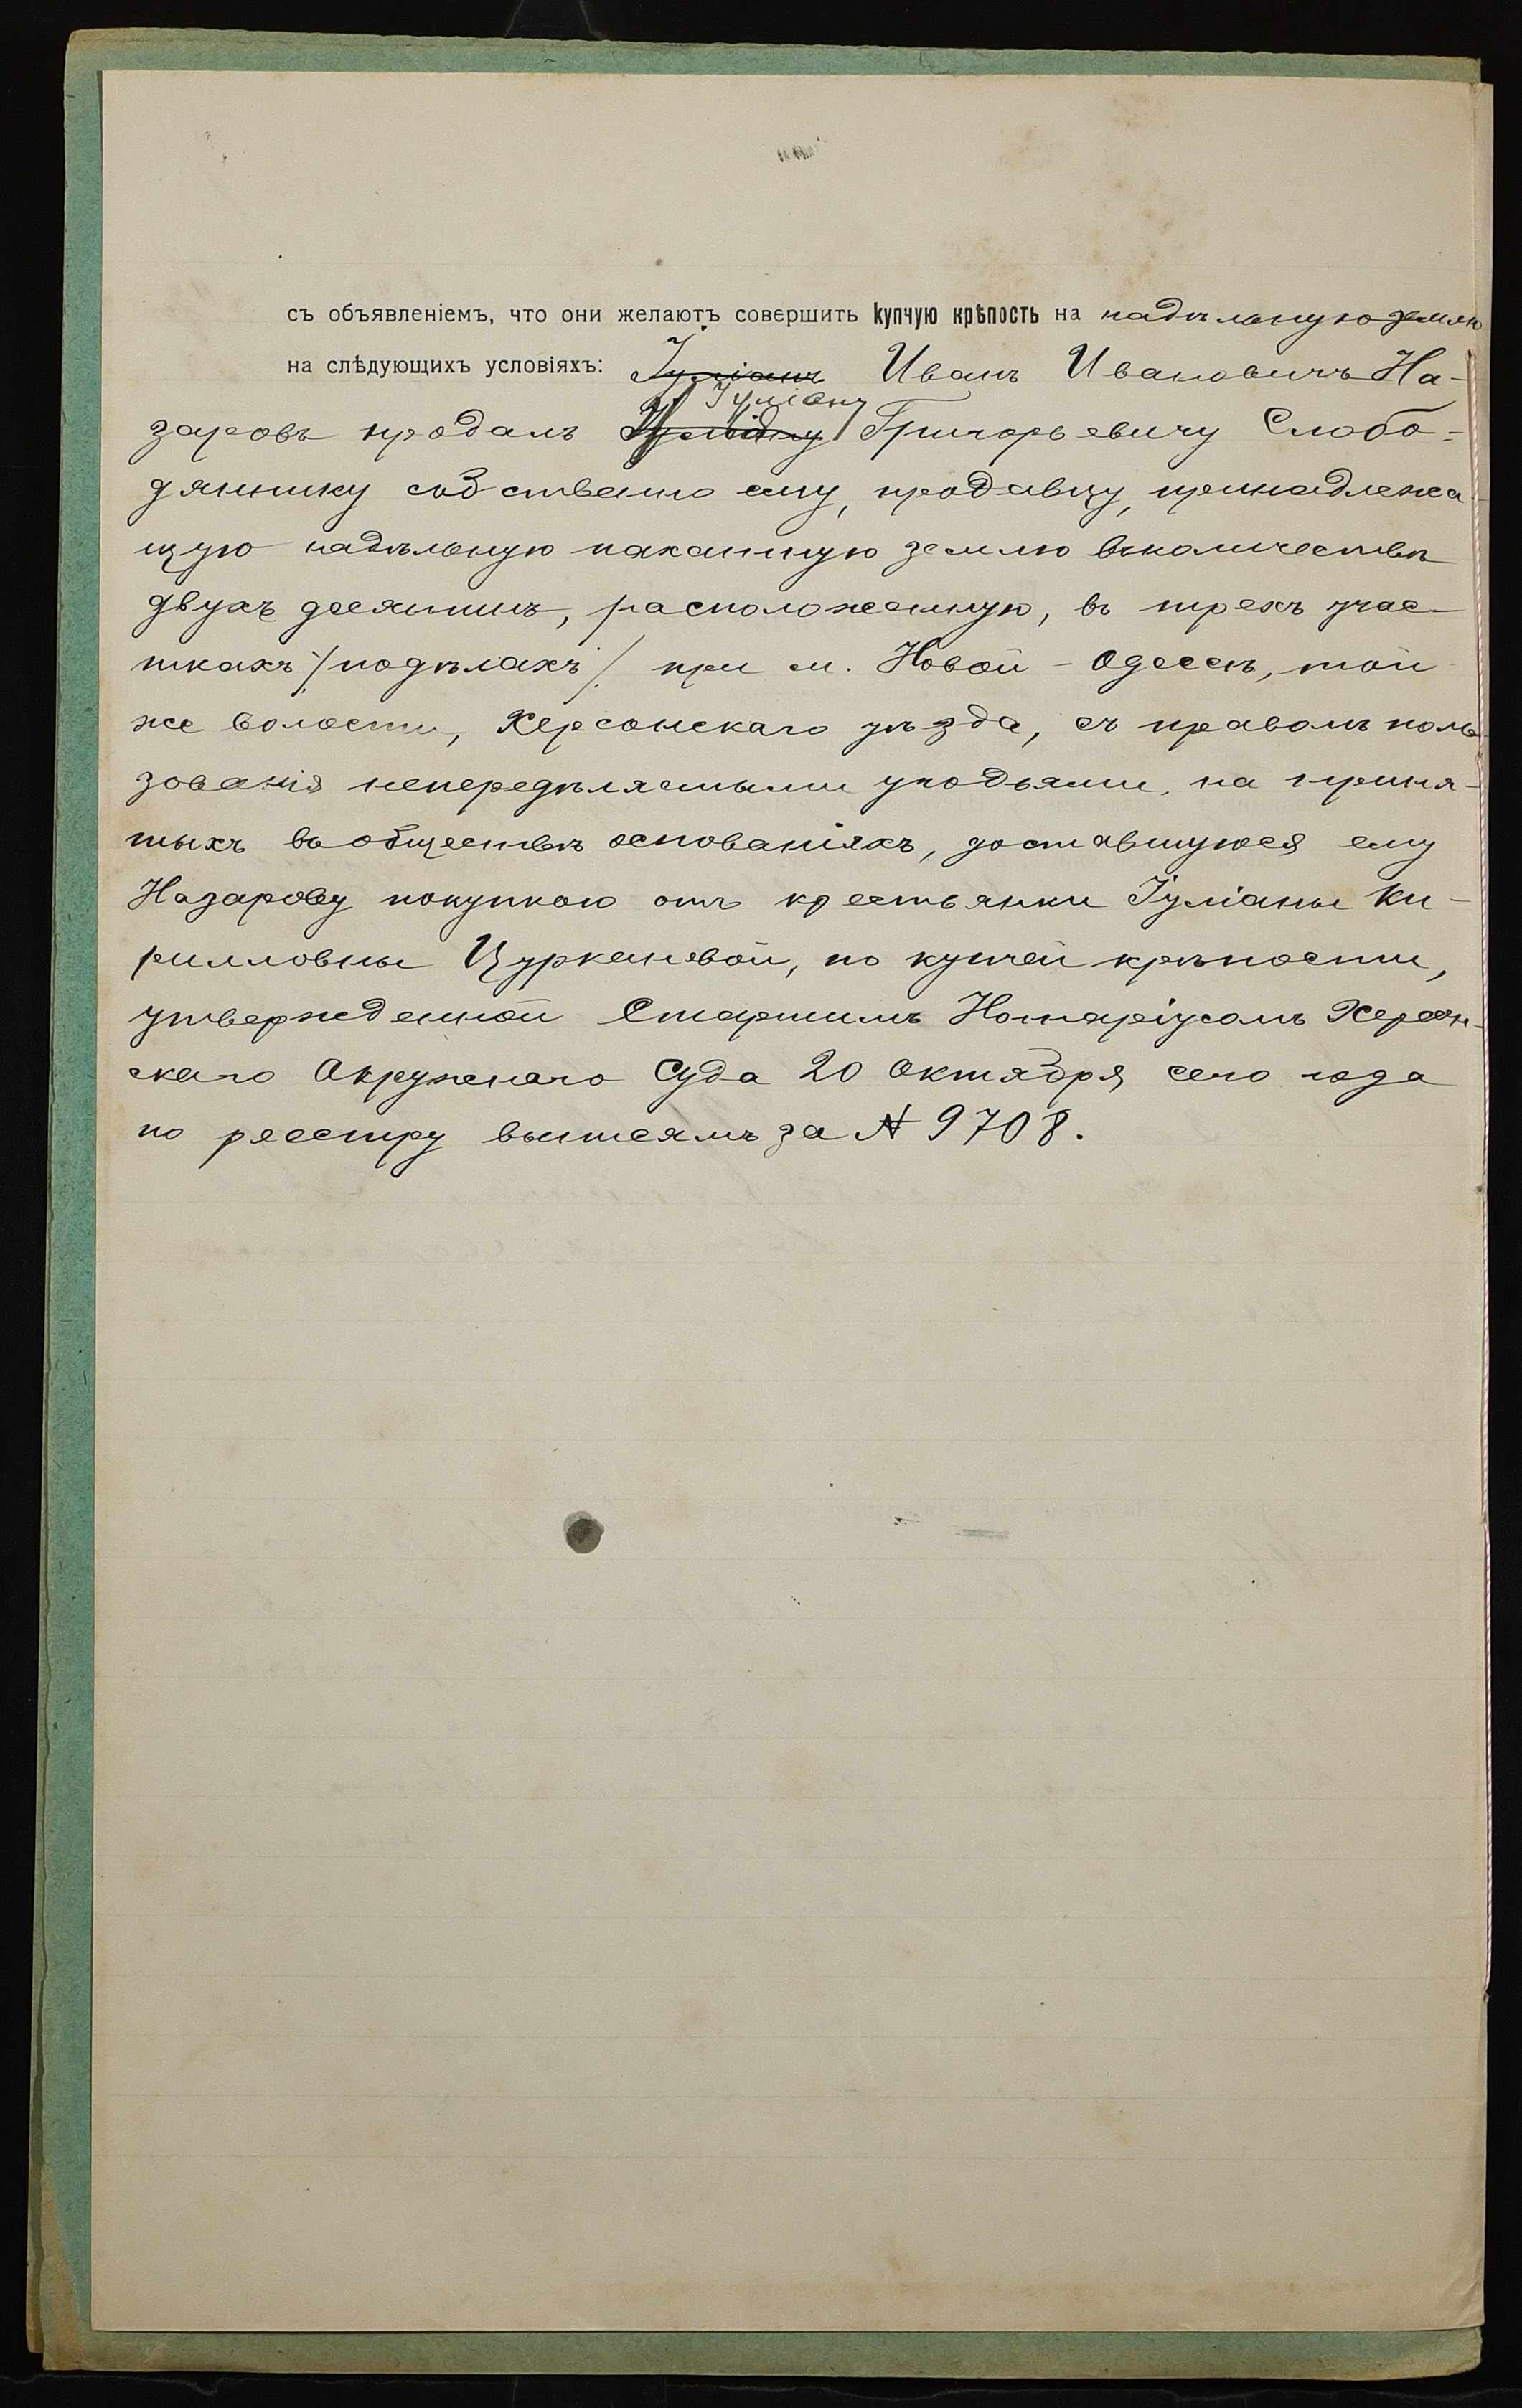 съ объявленіемъ, что они желаютъ совершить купчую крѣпость на надѣльную землю
на слѣдующихъ условіяхъ: Іуліанъ Иванъ Ивановичъ На-
Іуліану
заровъ продалъ Григорьевичу Слобо-
дяннику собственно ему, продавцу, принадлежа-
щую надѣльную пахатную землю въ количествѣ
двухъ десятинъ, расположенную, въ трехъ учас-
ткахъ /подѣлахъ/ при м. Новой-Одессѣ, той
же волости, Херсонскаго уѣзда, съ правомъ поль-
зованія непередѣляемыми угодьями, на приня-
тыхъ въ обществѣ основаніяхъ, доставшуюся ему
Назарову покупкою отъ крестьянки Іуліаны Ки-
рилловны Цуркановой, по купчей крѣпости,
утвержденной Старшимъ Нотаріусомъ Херсон-
скаго Окружнаго Суда 20 Октября сего года
по реестру за № 9708.